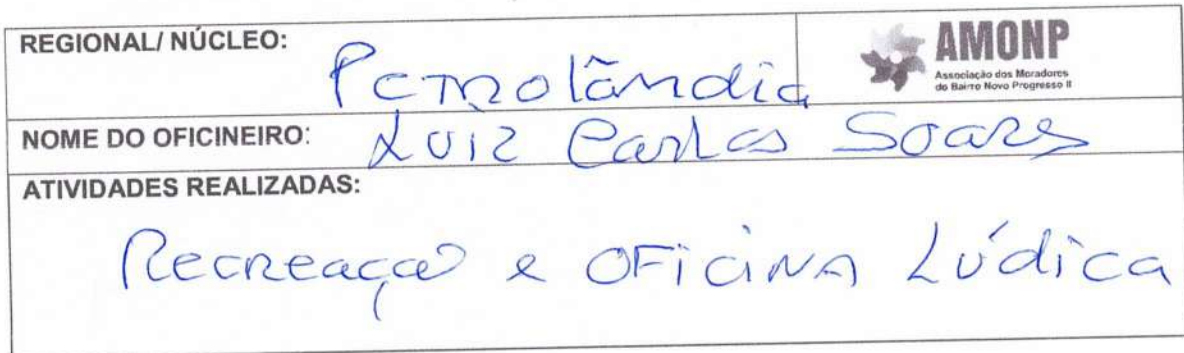 REGIONAL/ NÚCLEO: Petrolândia
AMONP
Associação dos Moradores
do Bairro Novo Progresso II
NOME DO OFICINEIRO: Luiz Carlos Soares
ATIVIDADES REALIZADAS:
Recreação e OFiciNA Lúdica